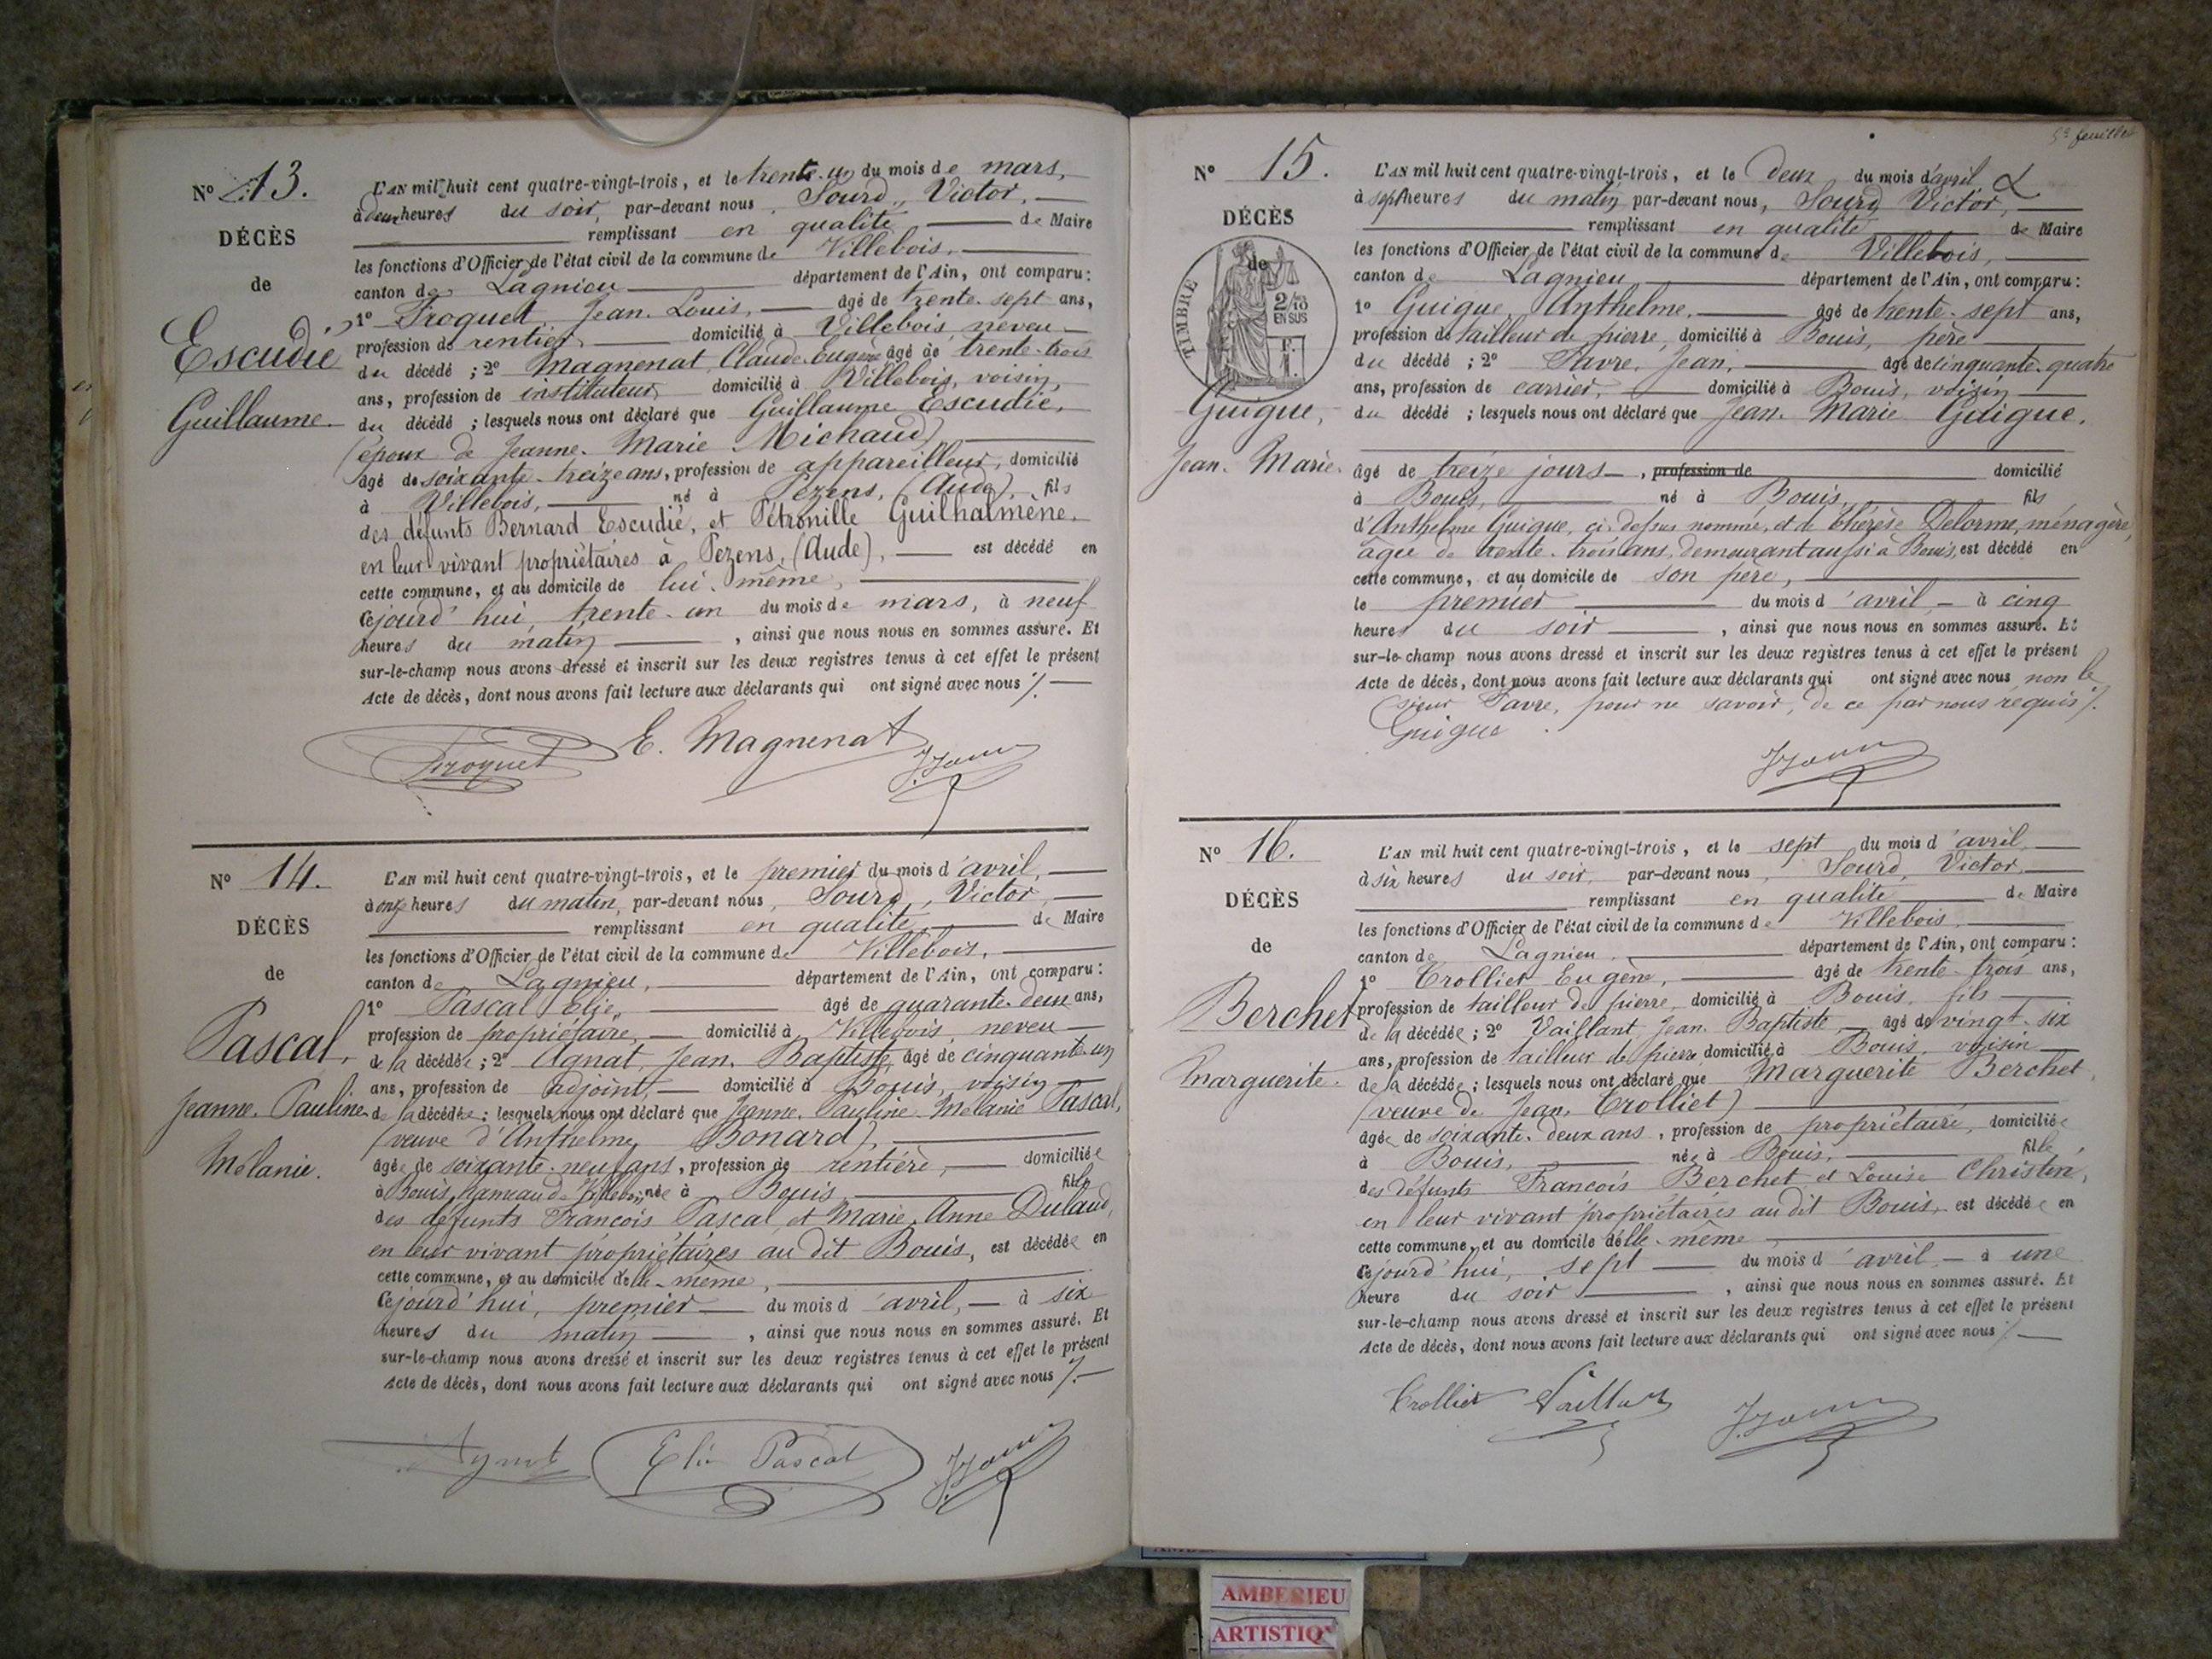 N° 13.
DÉCÈS
de
Escudié
Guillaume.
L'AN mil huit cent quatre-vingt-trois, et le trente-un du mois de mars,
à deux heures du soir, par-devant nous, Sourd, Victor,
remplissant en qualité de Maire
les fonctions d'Officier de l'état civil de la commune de Villebois,
canton de Lagnieu département de l'Ain, ont comparu:
1° Froquet, Jean-Louis, âgé de trente-sept ans,
profession de rentier domicilié à Villebois neveu
du décédé ; 2° Magnenat, Claude-Eugène âgé de trente-trois
ans, profession de instituteur domicilié à Villebois, voisin,
du décédé ; lesquels nous ont déclaré que Guillaume Escudié,
(époux de Jeanne-Marie Michaud)
âgé de soixante-treize ans, profession de appareilleur, domicilié
à Villebois, né à Pezens, (Aude), fils
des défunts Bernard Escudié, et Pétronille Guilhalmène,
en leur vivant propriétaires à Pezens, (Aude), est décédé en
cette commune, et au domicile de lui-même,
cejourd'hui, trente-un du mois de mars, à neuf
heures du matin, ainsi que nous nous en sommes assuré. Et
sur-le-champ nous avons dressé et inscrit sur les deux registres tenus à cet effet le présent
Acte de décès, dont nous avons fait lecture aux déclarants qui ont signé avec nous /.
Froquet E. Magnenat
N° 14.
DÉCÈS
de
Pascal,
Jeanne-Pauline
Mélanie.
L'AN mil huit cent quatre-vingt-trois, et le premier du mois d'avril,
à onze heures du matin, par-devant nous, Sourd, Victor,
remplissant en qualité de Maire
les fonctions d'Officier de l'état civil de la commune de Villebois,
canton de Lagnieu, département de l'Ain, ont comparu:
1° Pascal Elie, âgé de quarante-deux ans,
profession de propriétaire, domicilié à Villebois, neveu
de la décédée ; 2° Agnat, Jean-Baptiste, âgé de cinquante-un
ans, profession de adjoint, domicilié à Bouis, voisin
de la décédée ; lesquels nous ont déclaré que Jeanne-Pauline-Mélanie Pascal,
(veuve d'Anthelme Bonard),
âgée de soixante-neuf ans, profession de rentière, domiciliée
à Bouis, hameau de Villebois, née à Bouis, fille
des défunts François Pascal et Marie-Anne Dulaud,
en leur vivant propriétaires au dit Bouis, est décédée en
cette commune, et au domicile d'elle-même,
cejourd'hui, premier du mois d'avril, à six
heures du matin, ainsi que nous nous en sommes assuré. Et
sur-le-champ nous avons dressé et inscrit sur les deux registres tenus à cet effet le présent
Acte de décès, dont nous avons fait lecture aux déclarants qui ont signé avec nous /.
Elie Pascal
5e feuillet
N° 15.
DÉCÈS
de
TIMBRE
2/10
EN SUS
Guigue,
Jean-Marie.
L'AN mil huit cent quatre-vingt-trois, et le deux du mois d'avril
à sept heures du matin, par-devant nous, Sourd, Victor,
remplissant en qualité de Maire
les fonctions d'Officier de l'état civil de la commune de Villebois,
canton de Lagnieu, département de l'Ain, ont comparu:
1° Guigue, Anthelme, âgé de trente-sept ans,
profession de tailleur de pierre, domicilié à Bouis, père
du décédé ; 2° Favre, Jean, âgé de cinquante-quatre
ans, profession de carrier, domicilié à Bouis, voisin
du décédé ; lesquels nous ont déclaré que Jean-Marie Guigue,
âgé de treize jours, profession de domicilié
à Bouis, né à Bouis, fils
d'Anthelme Guigue, ci-dessus nommé, et de Thérèse Delorme, ménagère,
âgée de trente-trois ans, demeurant aussi à Bouis, est décédé en
cette commune, et au domicile de son père,
le premier du mois d'avril, à cinq
heures du soir, ainsi que nous nous en sommes assuré. Et
sur-le-champ nous avons dressé et inscrit sur les deux registres tenus à cet effet le présent
Acte de décès, dont nous avons fait lecture aux déclarants qui ont signé avec nous non le
sieur Favre, pour ne savoir, de ce par nous requis /.
Guigue
N° 16.
DÉCÈS
de
Berchet
Marguerite.
L'AN mil huit cent quatre-vingt-trois, et le sept du mois d'avril
à six heures du soir, par-devant nous, Sourd, Victor,
remplissant en qualité de Maire
les fonctions d'Officier de l'état civil de la commune de Villebois,
canton de Lagnieu, département de l'Ain, ont comparu:
1° Trolliet Eugène, âgé de trente-trois ans,
profession de tailleur de pierre, domicilié à Bouis, fils
de la décédée ; 2° Vaillant, Jean-Baptiste, âgé de vingt-six
ans, profession de tailleur de pierre domicilié à Bouis, voisin
de la décédée ; lesquels nous ont déclaré que Marguerite Berchet,
(veuve de Jean Trolliet)
âgée de soixante-deux ans, profession de propriétaire, domiciliée
à Bouis, née à Bouis, fille
des défunts François Berchet et Louise Christin,
en leur vivant propriétaires au dit Bouis, est décédée en
cette commune, et au domicile d'elle-même,
cejourd'hui, sept du mois d'avril, à une
heure du soir, ainsi que nous nous en sommes assuré. Et
sur-le-champ nous avons dressé et inscrit sur les deux registres tenus à cet effet le présent
Acte de décès, dont nous avons fait lecture aux déclarants qui ont signé avec nous /.
Trolliet Vaillant
AMBERIEU
ARTISTIQ